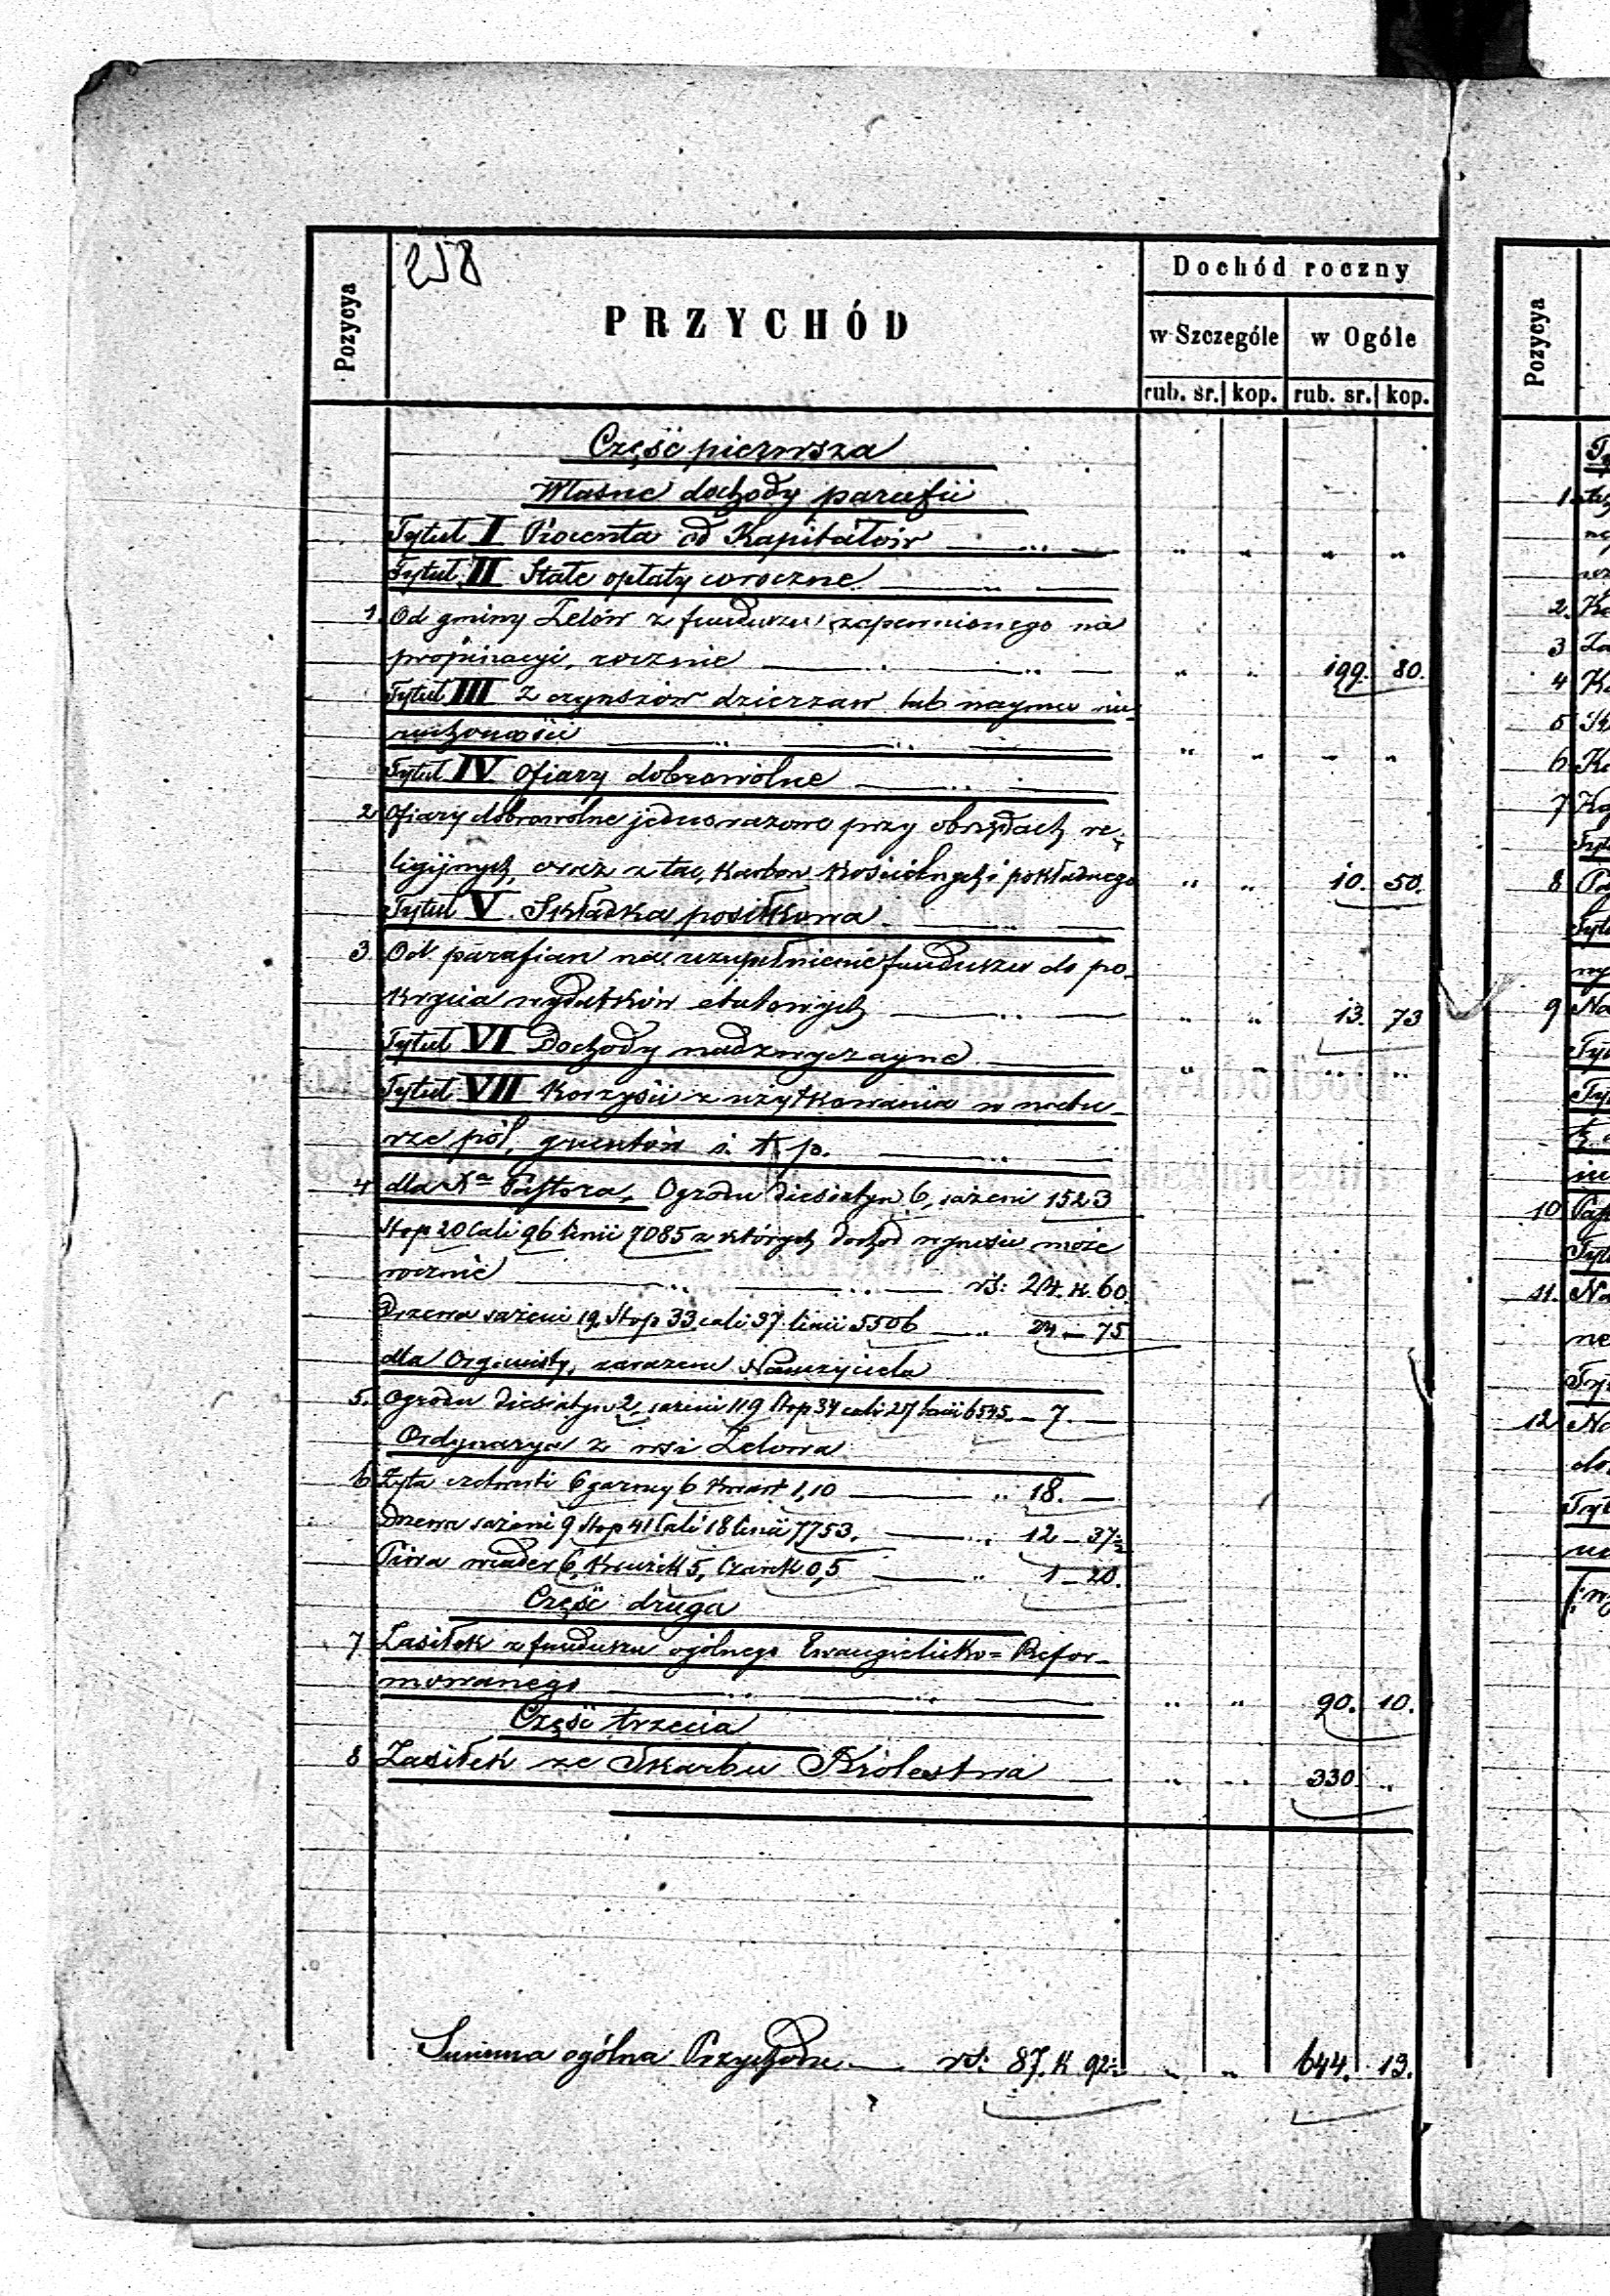 258
Pozycya
PRZYCHÓD
Dochód roczny
w Szczególe
w Ogóle
rub. sr. kop. rub. sr. kop.
Część pierwsza
Własne dochody parafii
Tytuł I Procenta od Kapitałów " " " "
Tytuł II Stałe opłaty coroczne
1. Od gminy Zelów z funduszu zapewnionego na
propinacyi, rocznie " " 199. 80.
Tytuł III Z czynszów dzierzaw lub naymu nie-
ruchomości " " " "
Tytuł IV Ofiary dobrowolne
2 Ofiary dobrowolne jednorazowe przy obrzędach re-
ligijnych, oraz z tac, Karbon Kościelnych i pokładnego " " 10. 50.
Tytuł V. Składka posiłkowa
3 Od parafian na uzupełnienie funduszu do po-
krycia wydatków etatowych " " 13. 73
Tytuł VI Dochody nadzwyczayne " " " "
Tytuł VII Korzyści z użytkowania w natu-
rze pól, gruntów i. t. p.
4 dla Xa Pastora, Ogrodu diesiatyn 6, sażeni 1523
Stop 20 Cali 96 linii 7085 z których dochod wynosić może
rocznie rs: 24. k. 60.
Drzewa sażeni 19, Stop 33 cali 37 linii 5506 " 24 – 75
dla Organisty, zarazem Nauczyciela
5. Ogrodu diesiatyn 2 sażeni 119 Stop 34 cali 27 linii 6545 – 7. –
Ordynarya z wsi Zelowa
6 Żyta czetwerti 6 garncy 6 Kwart 1,10 " 18. –
Drzewa sażeni 9 Stop 41 Cali 18 linii 7753. " 12 – 37½
Piwa wiader 6, Krużek 5, Czarek 0,5 " 1 – 20.
Część druga
7 Zasiłek z funduszu ogólnego Ewangielicko=Refor-
mowanego " " 90. 10.
Część trzecia
8 Zasiłek ze Skarbu Królestwa " " 330 "
Summa ogólna Przychodu rs: 87. k 92½ " " 644. 13.
Pozycya
1
2.
3
4
5
6
7
8
9
10
11.
12